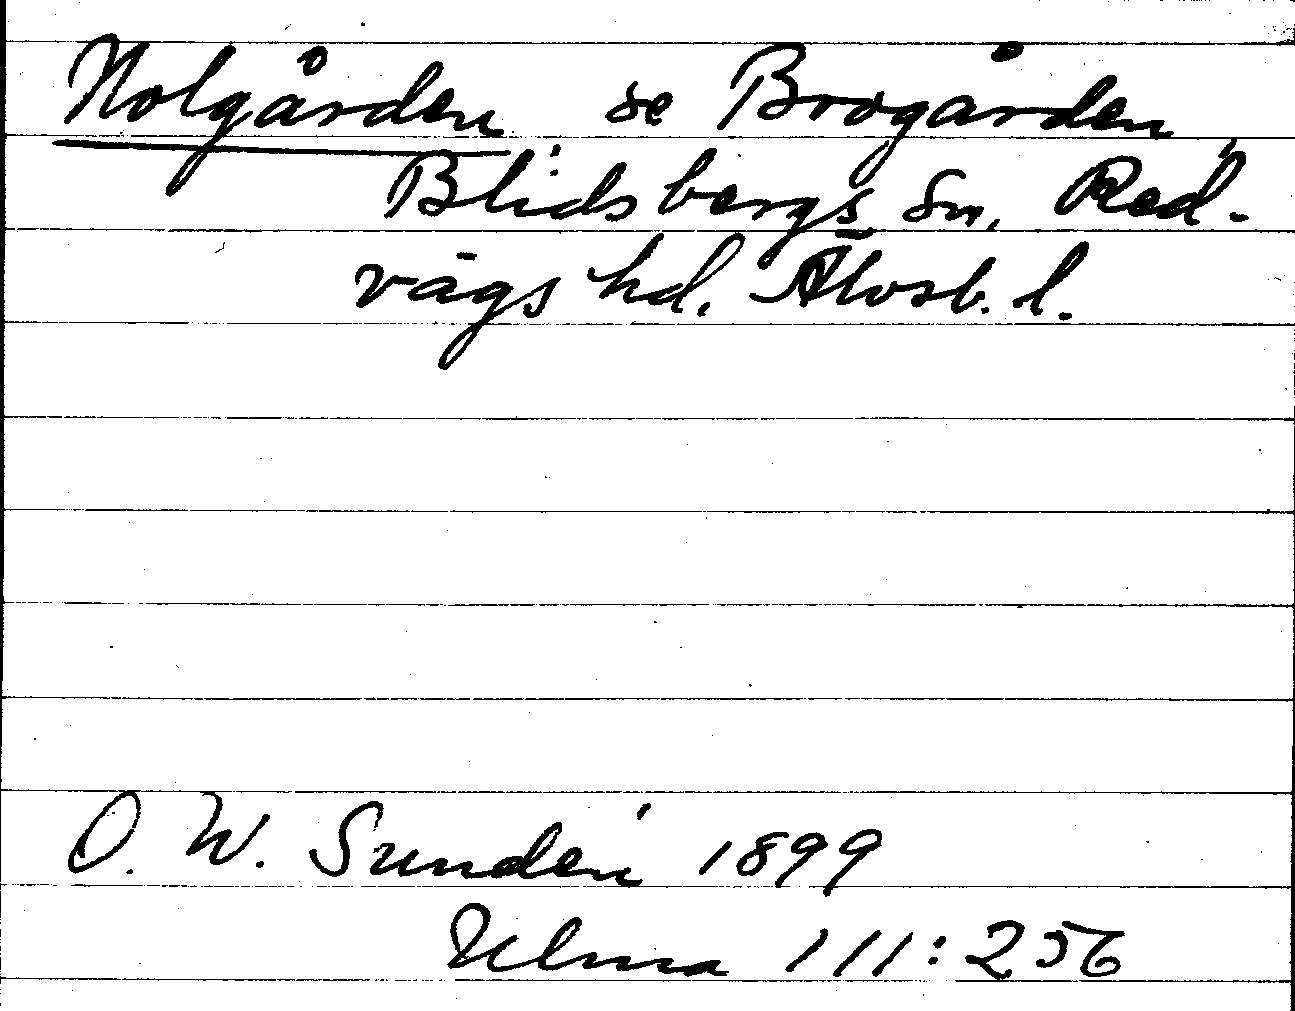 Nolgården se Brogården,
Blidsbergs sn, Red-
vägs hd. Älvsb. l.
D. W. Sundén 1899
Ulma 111:256